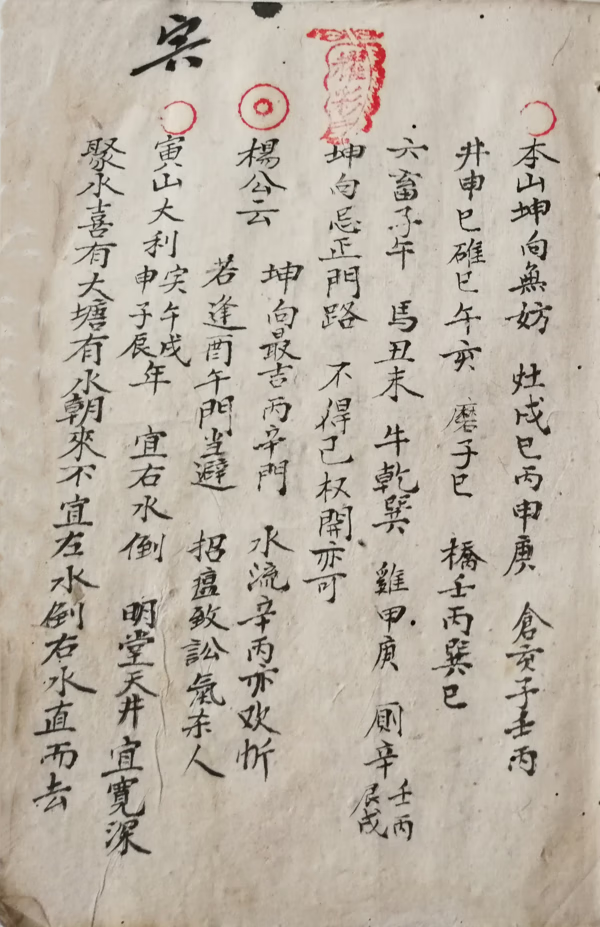 寅
本山坤向無妨 灶戌巳丙申庚 倉亥子壬丙
井申巳碓巳午亥 磨子巳 橋壬丙巽巳
六畜子午 馬丑未 牛乾巽 雞甲庚 厠辛壬丙辰戌
坤向忌正門路 不得已权開亦可
楊公云 坤向最吉丙辛門 水流辛丙亦欢忻
若逢酉午門当避 招瘟致訟氣杀人
寅山大利寅午戌申子辰年 宜右水倒 明堂天井宜寬深
聚水喜有大塘有水朝來不宜左水倒右水直而去